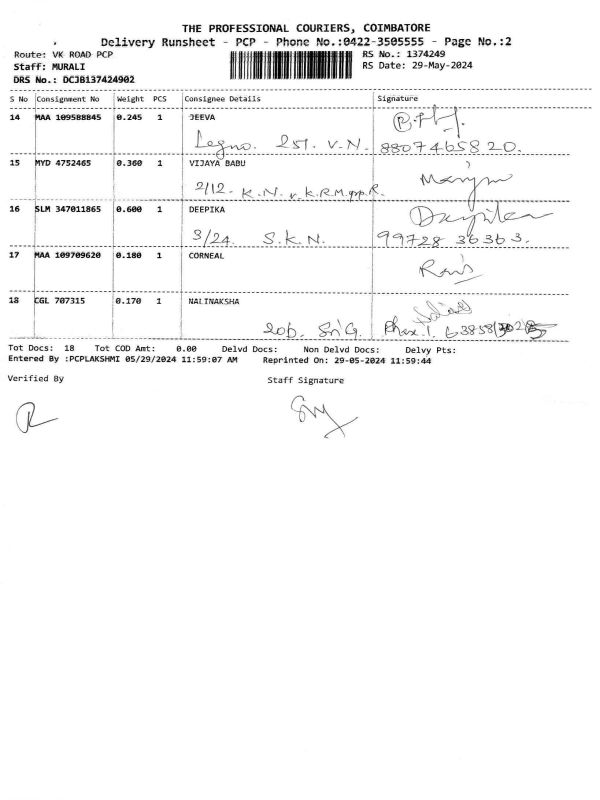 THE PROFESSIONAL COURIERS, COIMBATORE
Delivery Runsheet - PCP - Phone No.:0422-3505555 - Page No.:2
Route: VK ROAD PCP RS No.: 1374249
Staff: MURALI RS Date: 29-May-2024
DRS No.: DCJB137424902
S No Consignment No Weight PCS Consignee Details Signature
14 MAA 109588845 0.245 1 JEEVA
Legno. 251. V.N. 8807465820.
15 MYD 4752465 0.360 1 VIJAYA BABU
2/12. K.N.
16 SLM 347011865 0.600 1 DEEPIKA
3/24. S.K.N. 99728 36363.
17 MAA 109709620 0.180 1 CORNEAL
18 CGL 707315 0.170 1 NALINAKSHA
20b. Sri G. Phase 1.
Tot Docs: 18 Tot COD Amt: 0.00 Delvd Docs: Non Delvd Docs: Delvy Pts:
Entered By :PCPLAKSHMI 05/29/2024 11:59:07 AM Reprinted On: 29-05-2024 11:59:44
Verified By Staff Signature